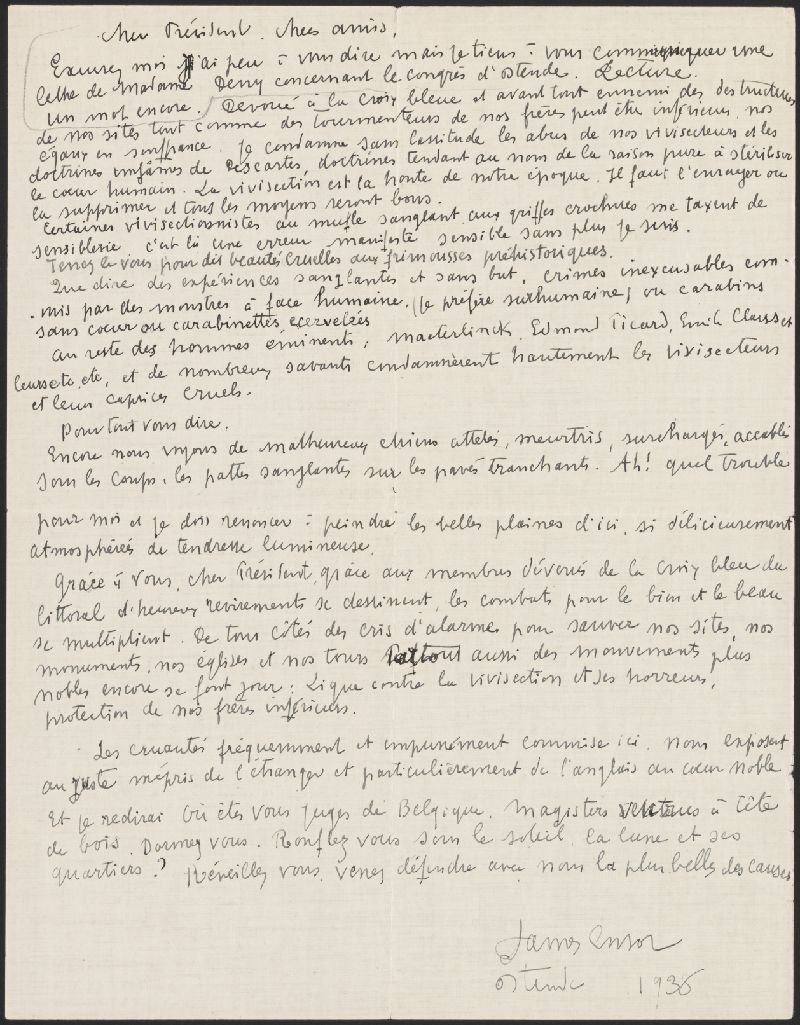 cher Président, chers amis,
Excusez moi j'ai peu à vous dire mais je tiens à vous communiquer une
lettre de Madame Deny concernant le congrès d'ostende. Lecture.
Un mot encore. Dévoué à la Croix bleue et avant tout ennemi des destructeurs
de nos sites tout comme des tourmenteurs de nos frères peut être inférieurs, nos
égaux en souffrance. Je condamne sans lassitude les abus de nos vivisecteurs et les
doctrines infâmes de Descartes, doctrines tendant au nom de la raison pure à stériliser
le cœur humain. La vivisection est la honte de notre époque. Il faut l'enrayer ou
la supprimer et tous les moyens seront bons.
Certaines vivisectionnistes au mufle sanglant aux griffes crochues me taxent de
sensiblerie c'est là une erreur manifeste sensible sans plus je suis.
Tenez le vous pour dit beautés cruelles aux frimousses préhistoriques.
Que dire des expériences sanglantes et sans but, crimes inexcusables com-
-mis par des monstres à face humaine. (je préfère surhumaine) ou carabins
sans cœur ou carabinettes écervelées
Au reste des hommes éminents, Maeterlinck, Edmond Picard, Emile Claus et
leurs etc, etc, et de nombreux savants condamnèrent hautement les vivisecteurs
et leurs caprices cruels.
Pour tout vous dire.
Encore nous voyons de malheureux chiens attelés, meurtris, surchargés, accablés
sous les coups, les pattes sanglantes sur les pavés tranchants. Ah! quel trouble
pour moi et je dois renoncer à peindre les belles plaines d'ici, si délicieusement
atmosphérés de tendresse lumineuse.
Grâce à vous, cher Président, grâce aux membres dévoués de la Croix bleu du
littoral d'heureux revirements se dessinent, les combats pour le bien et le beau
se multiplient. De tous côtés des cris d'alarme pour sauver nos sites, nos
monuments, nos églises et nos tours Partout aussi des mouvements plus
nobles encore se font jour: Ligue contre la vivisection et ses horreurs,
protection de nos frères inférieurs.
Les cruautés fréquemment et impunément commise ici, nous exposent
au juste mépris de l'étranger et particulièrement de l'anglais au cœur noble
Et je redirai Où êtes vous juges de Belgique, magisters à tête
de bois. Dormez vous. Ronflez vous sous le soleil, la lune et ses
quartiers? Réveillez vous, venez défendre avec nous la plus belle des causes
James Ensor
ostende 1936